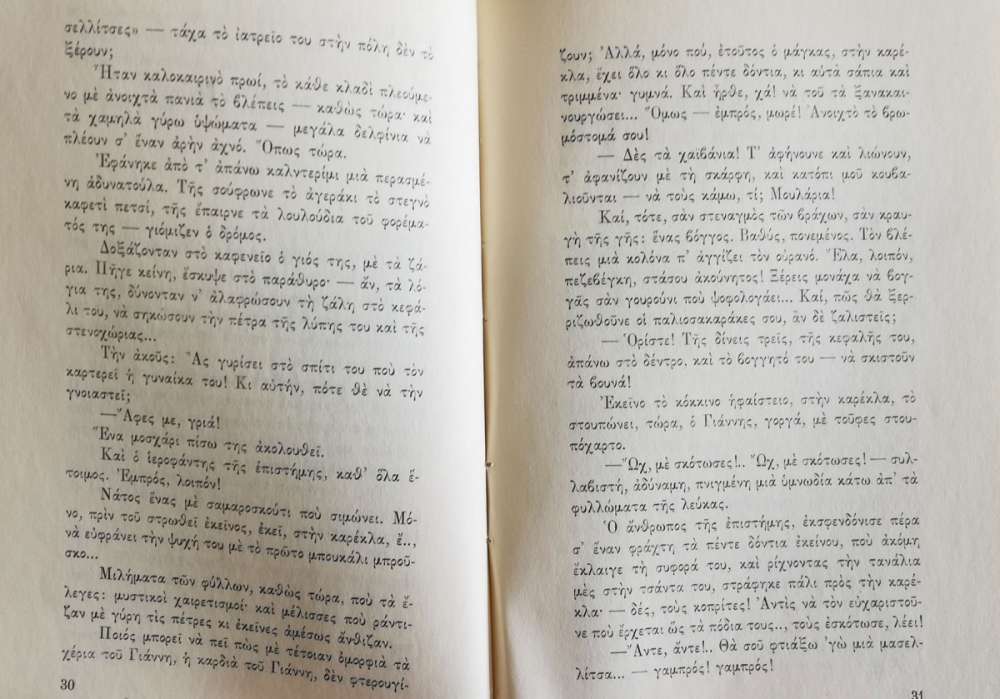 σελλίτσες» — τάχα τὸ ἰατρεῖο του στὴν πόλη δὲν τὸ
ξέρουν;
Ἦταν καλοκαιρινὸ πρωί, τὸ κάθε κλαδὶ πλεούμε-
νο μὲ ἀνοιχτὰ πανιὰ τὸ βλέπεις — καθὼς τώρα· καὶ
τὰ χαμηλὰ γύρω ὑψώματα — μεγάλα δελφίνια νὰ
πλέουν σ' ἕναν ἀρὴν ἀχνό. Ὅπως τώρα.
Ἐφάνηκε ἀπὸ τ' ἀπάνω καλντερίμι μιὰ περασμέ-
νη ἀδυνατούλα. Τῆς σούφρωνε τὸ ἀγεράκι τὸ στεγνὸ
καφετὶ πετσί, τῆς ἔπαιρνε τὰ λουλούδια τοῦ φορέμα-
τός της — γιόμιζεν ὁ δρόμος.
Δοξάζονταν στὸ καφενεῖο ὁ γιός της, μὲ τὰ ζά-
ρια. Πῆγε κείνη, ἔσκυψε στὸ παράθυρο· — ἄν, τὰ λό-
για της, δύνονταν ν' ἀλαφρώσουν τὴ ζάλη στὸ κεφά-
λι του, νὰ σηκώσουν τὴν πέτρα τῆς λύπης του καὶ τῆς
στενοχώριας...
Τὴν ἀκοῦς: Ἂς γυρίσει στὸ σπίτι του ποὺ τὸν
καρτερεῖ ἡ γυναίκα του! Κι αὐτήν, πότε θὲ νὰ τὴν
γνοιαστεῖ;
—Ἄφες με, γριά!
Ἕνα μοσχάρι πίσω της ἀκολουθεῖ.
Καὶ ὁ ἱεροφάντης τῆς ἐπιστήμης, καθ' ὅλα ἕ-
τοιμος. Ἐμπρός, λοιπόν!
Νάτος ἕνας μὲ σαμαροσκούτι ποὺ σιμώνει. Μό-
νο, πρὶν τοῦ στρωθεῖ ἐκεῖνος, ἐκεῖ, στὴν καρέκλα, ἔ..,
νὰ εὐφράνει τὴν ψυχή του μὲ τὸ πρῶτο μπουκάλι μπροῦ-
σκο...
Μιλήματα τῶν φύλλων, καθὼς τώρα, ποὺ τὰ ἔ-
λεγες: μυστικοὶ χαιρετισμοί· καὶ μέλισσες ποὺ ράντι-
ζαν μὲ γύρη τὶς πέτρες κι ἐκεῖνες ἀμέσως ἄνθιζαν.
Ποιός μπορεῖ νὰ πεῖ πὼς μὲ τέτοιαν ὀμορφιὰ τὰ
χέρια τοῦ Γιάννη, ἡ καρδιὰ τοῦ Γιάννη, δὲν φτερουγί-
30
ζουν; Ἀλλά, μόνο πού, ἐτοῦτος ὁ μάγκας, στὴν καρέ-
κλα, ἔχει ὅλο κι ὅλο πέντε δόντια, κι αὐτὰ σάπια καὶ
τριμμένα· γυμνά. Καὶ ἦρθε, χά! νὰ τοῦ τὰ ξανακαι-
νουργώσει... Ὅμως — ἐμπρός, μωρέ! Ἀνοιχτὸ τὸ βρω-
μόστομά σου!
— Δὲς τὰ χαϊβάνια! Τ' ἀφήνουνε καὶ λιώνουν,
τ' ἀφανίζουν μὲ τὴ σκάρφη, καὶ κατόπι μοῦ κουβα-
λιοῦνται — νὰ τοὺς κάμω, τί; Μουλάρια!
Καί, τότε, σὰν στεναγμὸς τῶν βράχων, σὰν κραυ-
γὴ τῆς γῆς: ἕνας βόγγος. Βαθύς, πονεμένος. Τὸν βλέ-
πεις μιὰ κολόνα π' ἀγγίζει τὸν οὐρανό. Ἔλα, λοιπόν,
πεζεβέγκη, στάσου ἀκούνητος! Ξέρεις μονάχα νὰ βογ-
γᾶς σὰν γουρούνι ποὺ ψοφολογάει... Καί, πῶς θὰ ξερ-
ριζωθοῦνε οἱ παλιοσακαράκες σου, ἂν δὲ ζαλιστεῖς;
— Ὁρίστε! Τῆς δίνεις τρεῖς, τῆς κεφαλῆς του,
ἀπάνω στὸ δέντρο. καὶ τὸ βογγητό του — νὰ σκιστοῦν
τὰ βουνά!
Ἐκεῖνο τὸ κόκκινο ἡφαίστειο, στὴν καρέκλα, τὸ
στουπώνει, τώρα, ὁ Γιάννης, γοργά, μὲ τοῦφες στου-
πόχαρτο.
—Ὤχ, μὲ σκότωσες!.. Ὤχ, μὲ σκότωσες! — συλ-
λαβιστή, ἀδύναμη, πνιγμένη μιὰ ὑμνωδία κάτω ἀπ' τὰ
φυλλώματα τῆς λεύκας.
Ὁ ἄνθρωπος τῆς ἐπιστήμης, ἐκσφενδόνισε πέρα
σ' ἕναν φράχτη τὰ πέντε δόντια ἐκείνου, ποὺ ἀκόμη
ἔκλαιγε τὴ συφορά του, καὶ ρίχνοντας τὴν τανάλια
μὲς στὴν τσάντα του, στράφηκε πάλι πρὸς τὴν καρέ-
κλα· — δές, τοὺς κοπρίτες! Ἀντὶς νὰ τὸν εὐχαριστοῦ-
νε ποὺ ἔρχεται ὣς τὰ πόδια τους.., τοὺς ἐσκότωσε, λέει!
—Ἄντε, ἄντε!.. Θὰ σοῦ φτιάξω 'γὼ μιὰ μασελ-
λίτσα... — γαμπρός! γαμπρός!
31